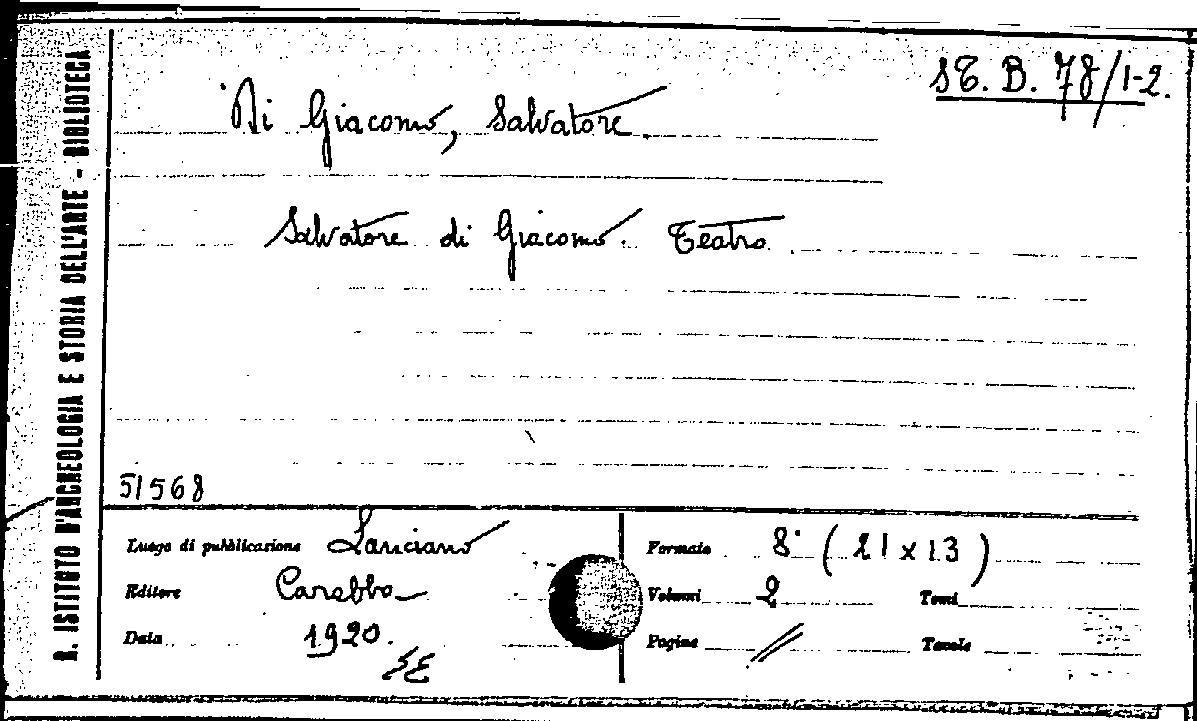 ST. B. 78/1-2.
Di Giacomo, Salvatore.
Salvatore di Giacomo. Teatro.
51568
Luogo di pubblicazione Lanciano
Editore Carabba
Data 1920.
Formato 8° (21 x 13)
Volumi 2 Tomi
Pagine // Tavole
R. ISTITUTO D'ARCHEOLOGIA E STORIA DELL'ARTE - BIBLIOTECA